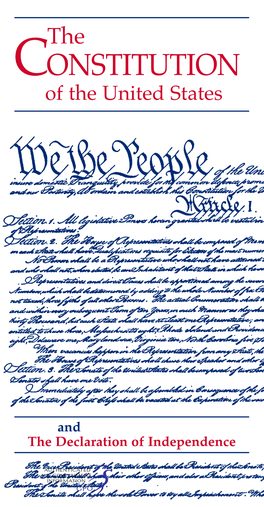 The
CONSTITUTION
of the United States
We the People of the Uni
insure domestic Tranquility, provide for the common defence, promo
and our Posterity, do ordain and establish this Constitution for the
Article. I.
Section. 1. All legislative Powers herein granted shall be vested in
of Representatives.
Section. 2. The House of Representatives shall be composed of Mem
in each State shall have Qualifications requisite for Electors of the most numer
No Person shall be a Representative who shall not have attained
and who shall not, when elected, be an Inhabitant of that State in which
Representatives and direct Taxes shall be apportioned among the several
Numbers, which shall be determined by adding to the whole Number of
not taxed, three fifths of all other Persons. The actual Enumeration shall
and within every subsequent Term of ten Years, in such Manner as they shall
thirty Thousand, but each State shall have at Least one Representative
entitled to chuse three, Massachusetts eight, Rhode Island and Providence
eight, Delaware one, Maryland six, Virginia ten, North Carolina five,
When vacancies happen in the Representation from any State, the
The House of Representatives shall chuse their Speaker and other
Section. 3. The Senate of the United States shall be composed of two
Senator shall have one Vote.
Immediately after they shall be assembled in Consequence of the
of the Senators of the first Class shall be vacated at the Expiration of the
and
The Declaration of Independence
The Vice President of the United States shall be President of the Senate,
The Senate shall chuse their other Officers, and also a President
President of the United States.
The Senate shall have the sole Power to try all Impeachments. Wh